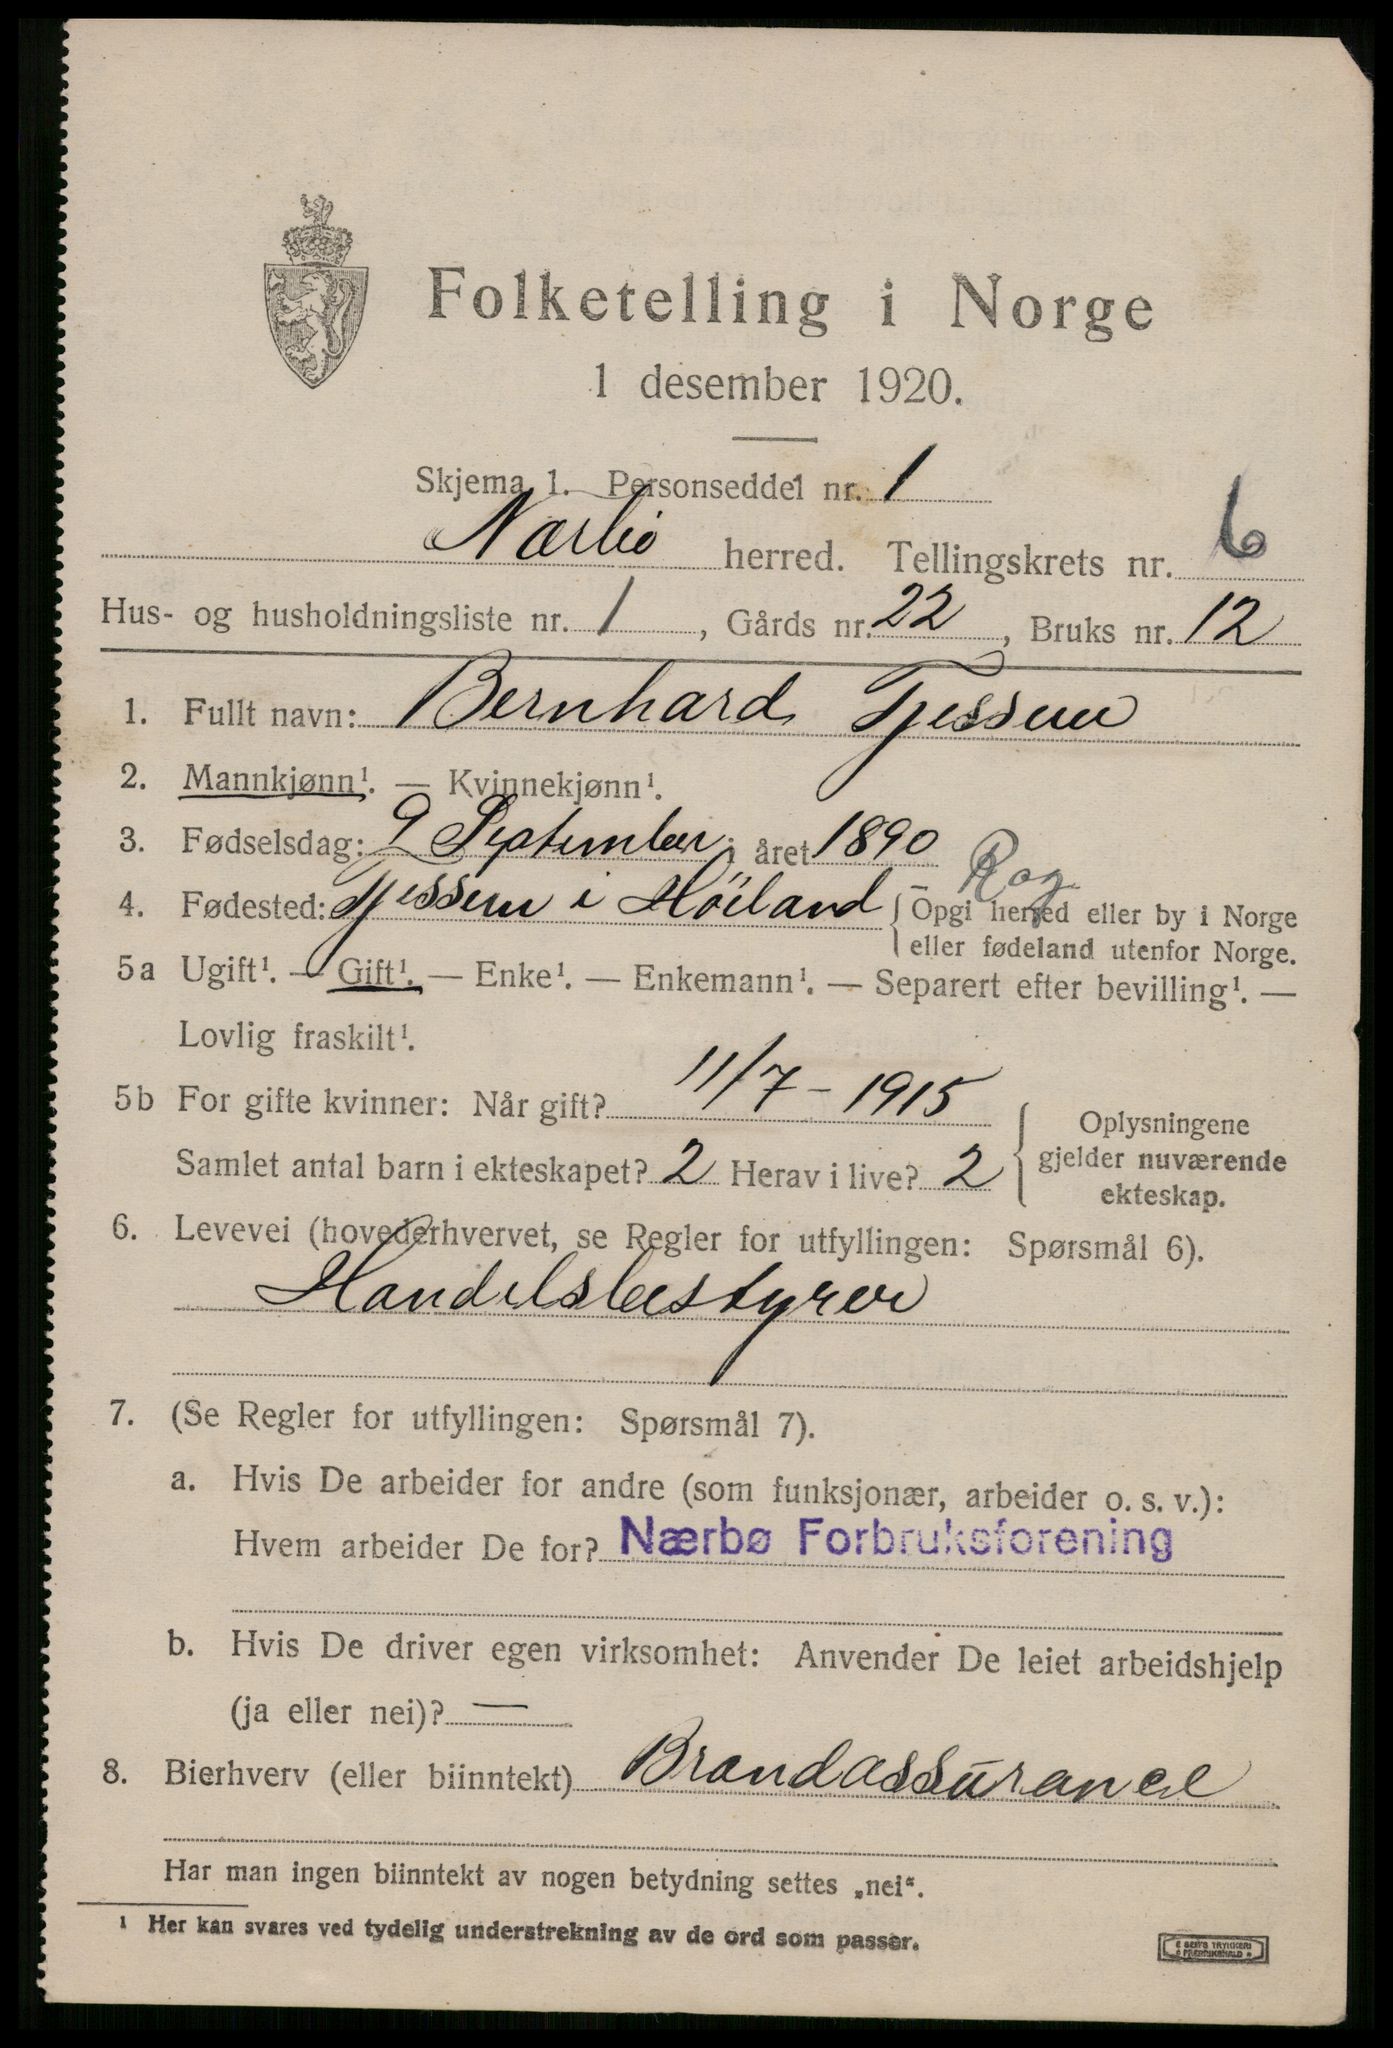 Folketelling i Norge
1 desember 1920.
Skjema 1. Personseddel nr. 1
Nærbö herred. Tellingskrets nr. 6
Hus- og husholdningsliste nr. 1, Gårds nr. 22, Bruks nr. 12
1. Fullt navn: Bernhard Tjessem
2. Mannkjønn¹. — Kvinnekjønn¹.
3. Fødselsdag: 9 September i året 1890
Rog.
4. Fødested: Tjessem i Höiland { Opgi herred eller by i Norge
eller fødeland utenfor Norge.
5a Ugift¹. — Gift¹. — Enke¹. — Enkemann¹. — Separert efter bevilling¹. —
Lovlig fraskilt¹.
5b For gifte kvinner: Når gift? 11/7 - 1915
Samlet antal barn i ekteskapet? 2 Herav i live? 2
{ Oplysningene
gjelder nuværende
ekteskap.
6. Levevei (hovederhvervet, se Regler for utfyllingen: Spørsmål 6).
Handelsbestyrer
7. (Se Regler for utfyllingen: Spørsmål 7).
a. Hvis De arbeider for andre (som funksjonær, arbeider o. s. v.):
Hvem arbeider De for? Nærbø Forbruksforening
b. Hvis De driver egen virksomhet: Anvender De leiet arbeidshjelp
(ja eller nei)? —
8. Bierhverv (eller biinntekt) Brandassurance
Har man ingen biinntekt av nogen betydning settes „nei“.
¹ Her kan svares ved tydelig understrekning av de ord som passer.
E SEM'S TRYKKERI
FREDRIKSHALD